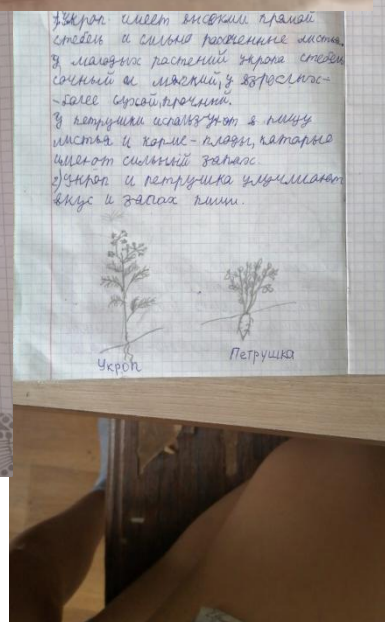 1) Укроп имеет высокий прямой
стебель и сильно рассеченные листья.
У молодых растений укропа стебель
сочный и мягкий, у взрослых-
-более сухой, прочный.
У петрушки используют в пищу
листья и корне-плоды, которые
имеют сильный запах.
2) Укроп и петрушка улучшают
вкус и запах пищи.
Укроп
Петрушка